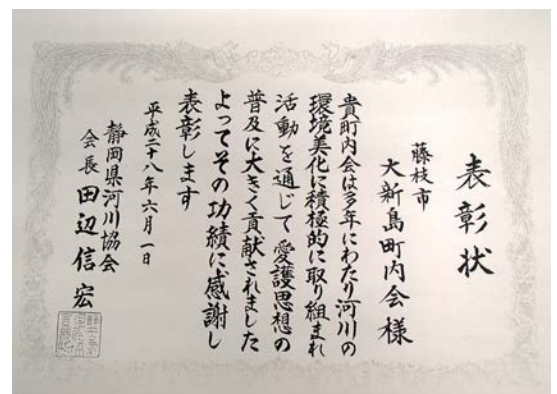 表彰状
藤枝市
大新島町内会様
貴町内会は多年にわたり河川の
環境美化に積極的に取り組まれ
活動を通じて愛護思想の
普及に大きく貢献されました
よってその功績に感謝し
表彰します
平成二十八年六月一日
静岡県河川協会
会長 田辺信宏